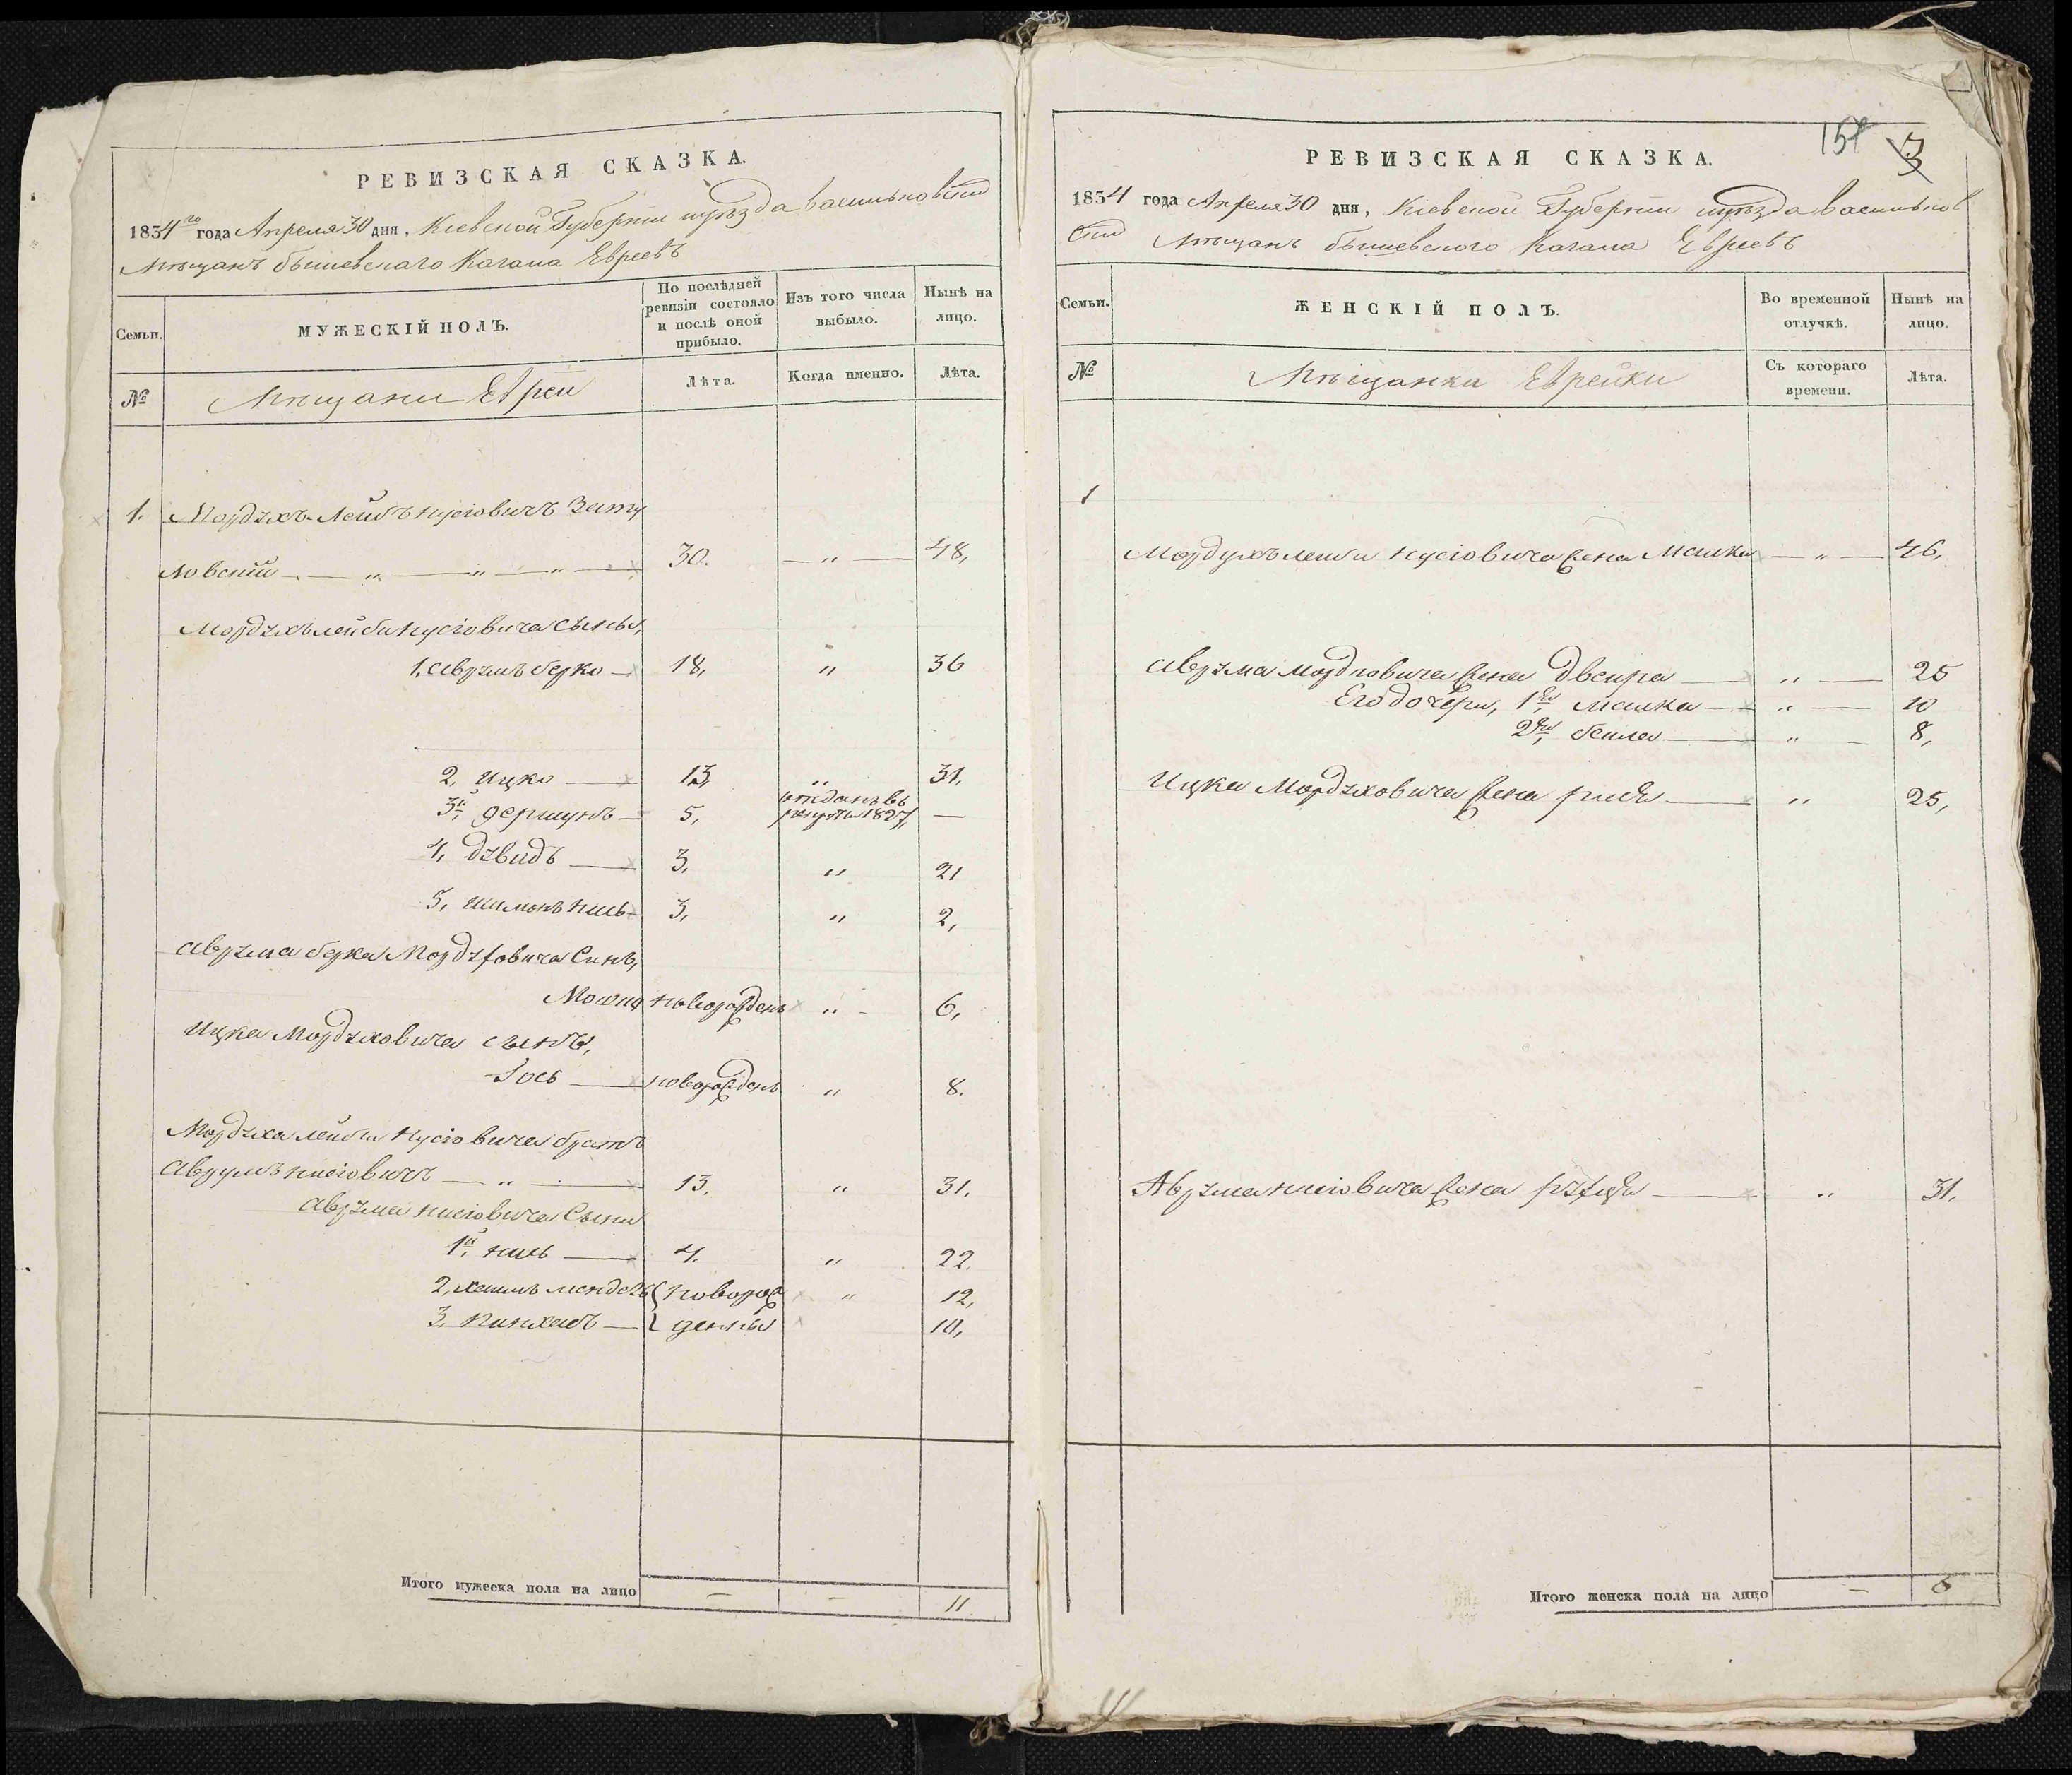 РЕВИЗСКАЯ СКАЗКА.
1834го года Апреля 30 дня, Кіевской Губерніи уѣзда васильковскаго
Мѣщанъ бышевскаго Кагала Евреевъ
Семьи.
МУЖЕСКІЙ ПОЛЪ.
По послѣдней ревизіи состояло и послѣ оной прибыло.
Изъ того числа выбыло.
Нынѣ на лицо.
№
Мѣщани Евреи
Лѣта.
Когда именно.
Лѣта.
1. Мордухъ Лейбъ Нусіовичъ
ловскій — „ — „ — „ — 30. — „ — 48,
Мордухъ лейбы Нусіовича Сыны,
1, Аврумъ берко — 18, „ 36
2, Ицко — 13, „ 31,
3й, — 5, отданъ въ рекруты 1827, —
4, Дувидъ — 3, „ 21
5, — 3, „ 2,
Аврума берка Мордуховича Синъ,
новорожденъ „ - 6,
Ицка Мордуховича сынъ,
Іось — новорожденъ „ 8.
Мордуха лейбы Нусіовича братъ
Аврумъ Нисіовичъ — „ — 13. „ 31.
Аврума Нисіовича Сыны
1й, — 4. „ 22.
2, хаимъ мендель { новорож „ 12,
3, Пинхасъ — { денны 10,
Итого мужеска пола на лицо — — 11
157 3
РЕВИЗСКАЯ СКАЗКА.
1834 года Апреля 30 дня, Кіевской Губерніи уѣзда васильков
скаго Мѣщанъ бышевского Кагала Евреевъ
Семьи.
ЖЕНСКІЙ ПОЛЪ.
Во временной отлучкѣ.
Нынѣ на лицо.
№
Мѣщанки Еврейки
Съ котораго времени.
Лѣта.
1
Мордухъ лейбы Нусіовича жена Малка — „ — 46,
Аврума Мордковича жена Двейра — „ — 25
Его дочери, 1я, Малка — „ — 10
2я, бейла — „ — 8,
Ицка Мордуховича жена — „ 25,
Аврума Нисіовича жена — „ 31.
Итого женска пола на лицо — 6